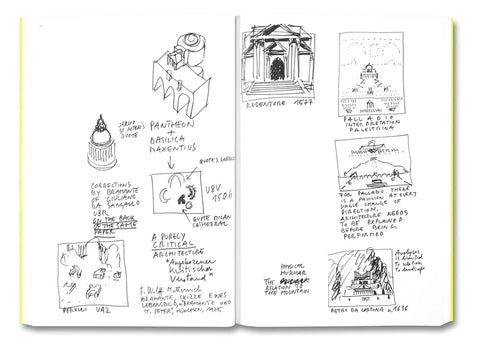 SERLIO
ST. PETER'S
DOME
PANTHEON
+
BASILICA
MAXENTIUS
CORRECTIONS
BY BRAMANTE
OF GIULIANO
DA SANGALLO
U8R
ON THE BACK
OF THE SAME
PAPER
U8V
1506
QUOTE MILAN
CATHEDRAL
A PURELY
CRITICAL
ARCHITECTURE
PERUZZI UA2
F. Wolff Metternich
BRAMANTE, SKIZZE EINES
LEBENSBILD, "BRAMANTE UND
ST. PETER", MÜNCHEN, 1975
REDENTORE 1577
PALLADIO
INTERPRETATION
PALESTRINA
FOR PALLADIO THERE
IS A PAVILION AT EVERY
SINGLE CHANGE OF
DIRECTION.
ARCHITECTURE NEEDS
TO BE EXPLAINED
BEFORE BEING
PERFORMED
PHYSICAL
MUSCULAR
THE
RELATION TO
THE MOUNTAIN
Analysis
is limited
to relation
to landscape
PIETRO DA CORTONA 1636